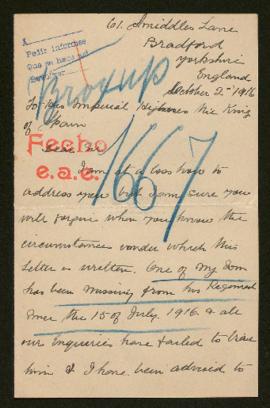 61. Smiddles Lane
Bradford
Yorkshire
England
October 2nd 1916
A
Pedir informes
Que seha pedido
Broxup
To His Imperial Highness The King
of Spain
Fecho
e.a.e.
1667
Dear Sir
I am at a loss how to
address you but am sure you
will forgive when you know the
circumstances under which this
letter is written. One of my Sons
has been missing from his Regiment
since the 15 of July. 1916 & all
our Enquiries have failed to trace
him & I have been advised to